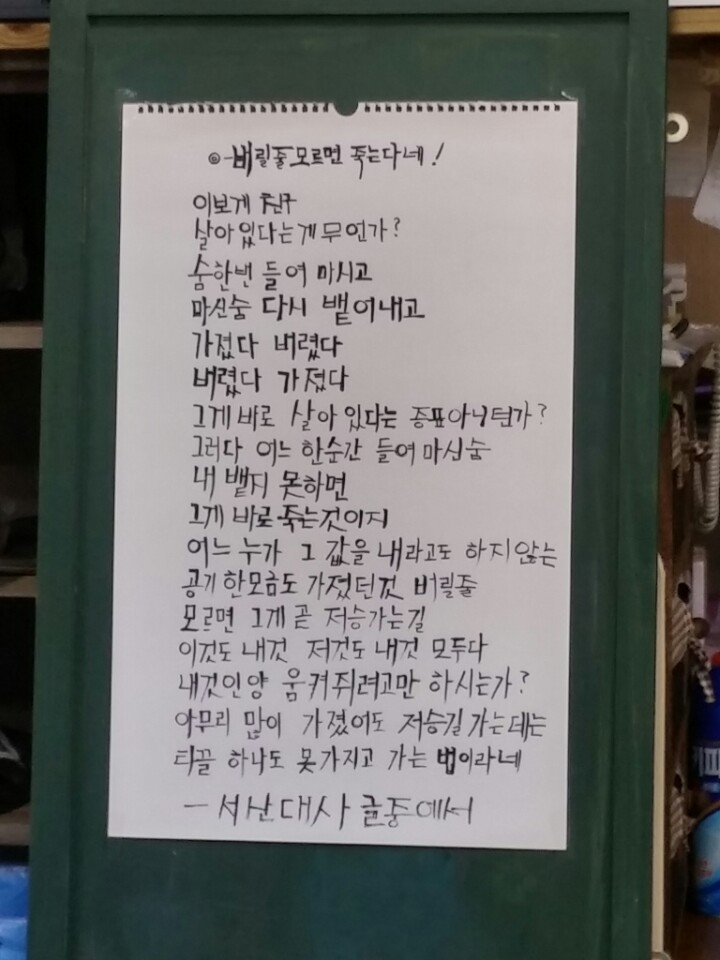 ◎ 버릴줄모르면 죽는다네!
이보게 친구
살아있다는게 무언가?
숨한번 들여 마시고
마신숨 다시 뱉어내고
가졌다 버렸다
버렸다 가졌다
그게바로 살아 있다는 증표아니던가?
그러다 어느 한순간 들여마신숨
내 뱉지 못하면
그게 바로 죽는것이지
어느 누가 그 값을 내라고도 하지않는
공기 한모금도 가졌던것 버릴줄
모르면 그게 곧 저승가는길
이것도 내것 저것도 내것 모두다
내것인양 움켜쥐려고만 하시는가?
아무리 많이 가졌어도 저승길 가는데는
티끌 하나도 못가지고 가는 법이라네
— 서산대사 글중에서